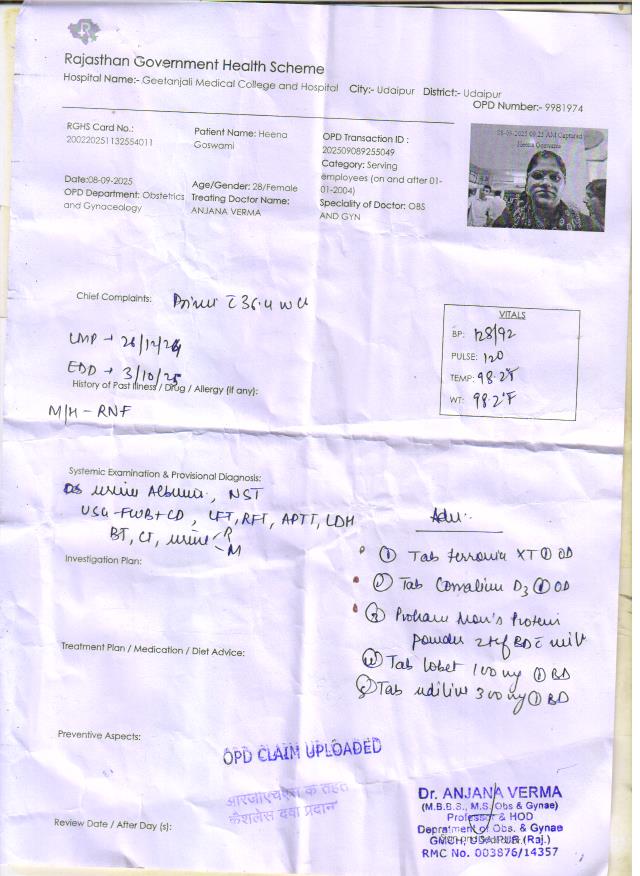 Rajasthan Government Health Scheme
Hospital Name:- Geetanjali Medical College and Hospital City:- Udaipur District:- Udaipur
OPD Number:- 9981974
RGHS Card No.:
200220251132554011
Patient Name: Heena
Goswami
OPD Transaction ID :
202509089255049
Category: Serving
employees (on and after 01-
01-2004)
08-09-2025 09:25 AM Captured
Heena Goswami
Date:08-09-2025
OPD Department: Obstetrics
and Gynaecology
Age/Gender: 28/Female
Treating Doctor Name:
ANJANA VERMA
Speciality of Doctor: OBS
AND GYN
Chief Complaints: 36.4 WG
LMP → 26/12/24
EDD → 3/10/25
VITALS
BP: 128/92
PULSE: 120
TEMP: 98.2°F
WT: 98.2°F
History of Past Illness / Drug / Allergy (if any):
M/H - RNF
Systemic Examination & Provisional Diagnosis:
urine Albumin, NST
USG - FWB+CD, LFT, RFT, APTT, LDH
BT, CT, urine R
M
Investigation Plan:
Treatment Plan / Medication / Diet Advice:
Adv:
① Tab XT ① OD
② Tab D3 ① OD
③ Mom's Protein
powder 2tsf BD c milk
④ Tab lobet 100 mg ① BD
⑤ Tab udiliv 300 mg ① BD
Preventive Aspects:
OPD CLAIM UPLOADED
आरजीएचएस के तहत
कैशलेस दवा प्रदान
Review Date / After Day (s):
Dr. ANJANA VERMA
(M.B.B.S., M.S. Obs & Gynae)
Professor & HOD
Depratment of Obs. & Gynae
GMCH, UDAIPUR (Raj.)
RMC No. 003876/14357